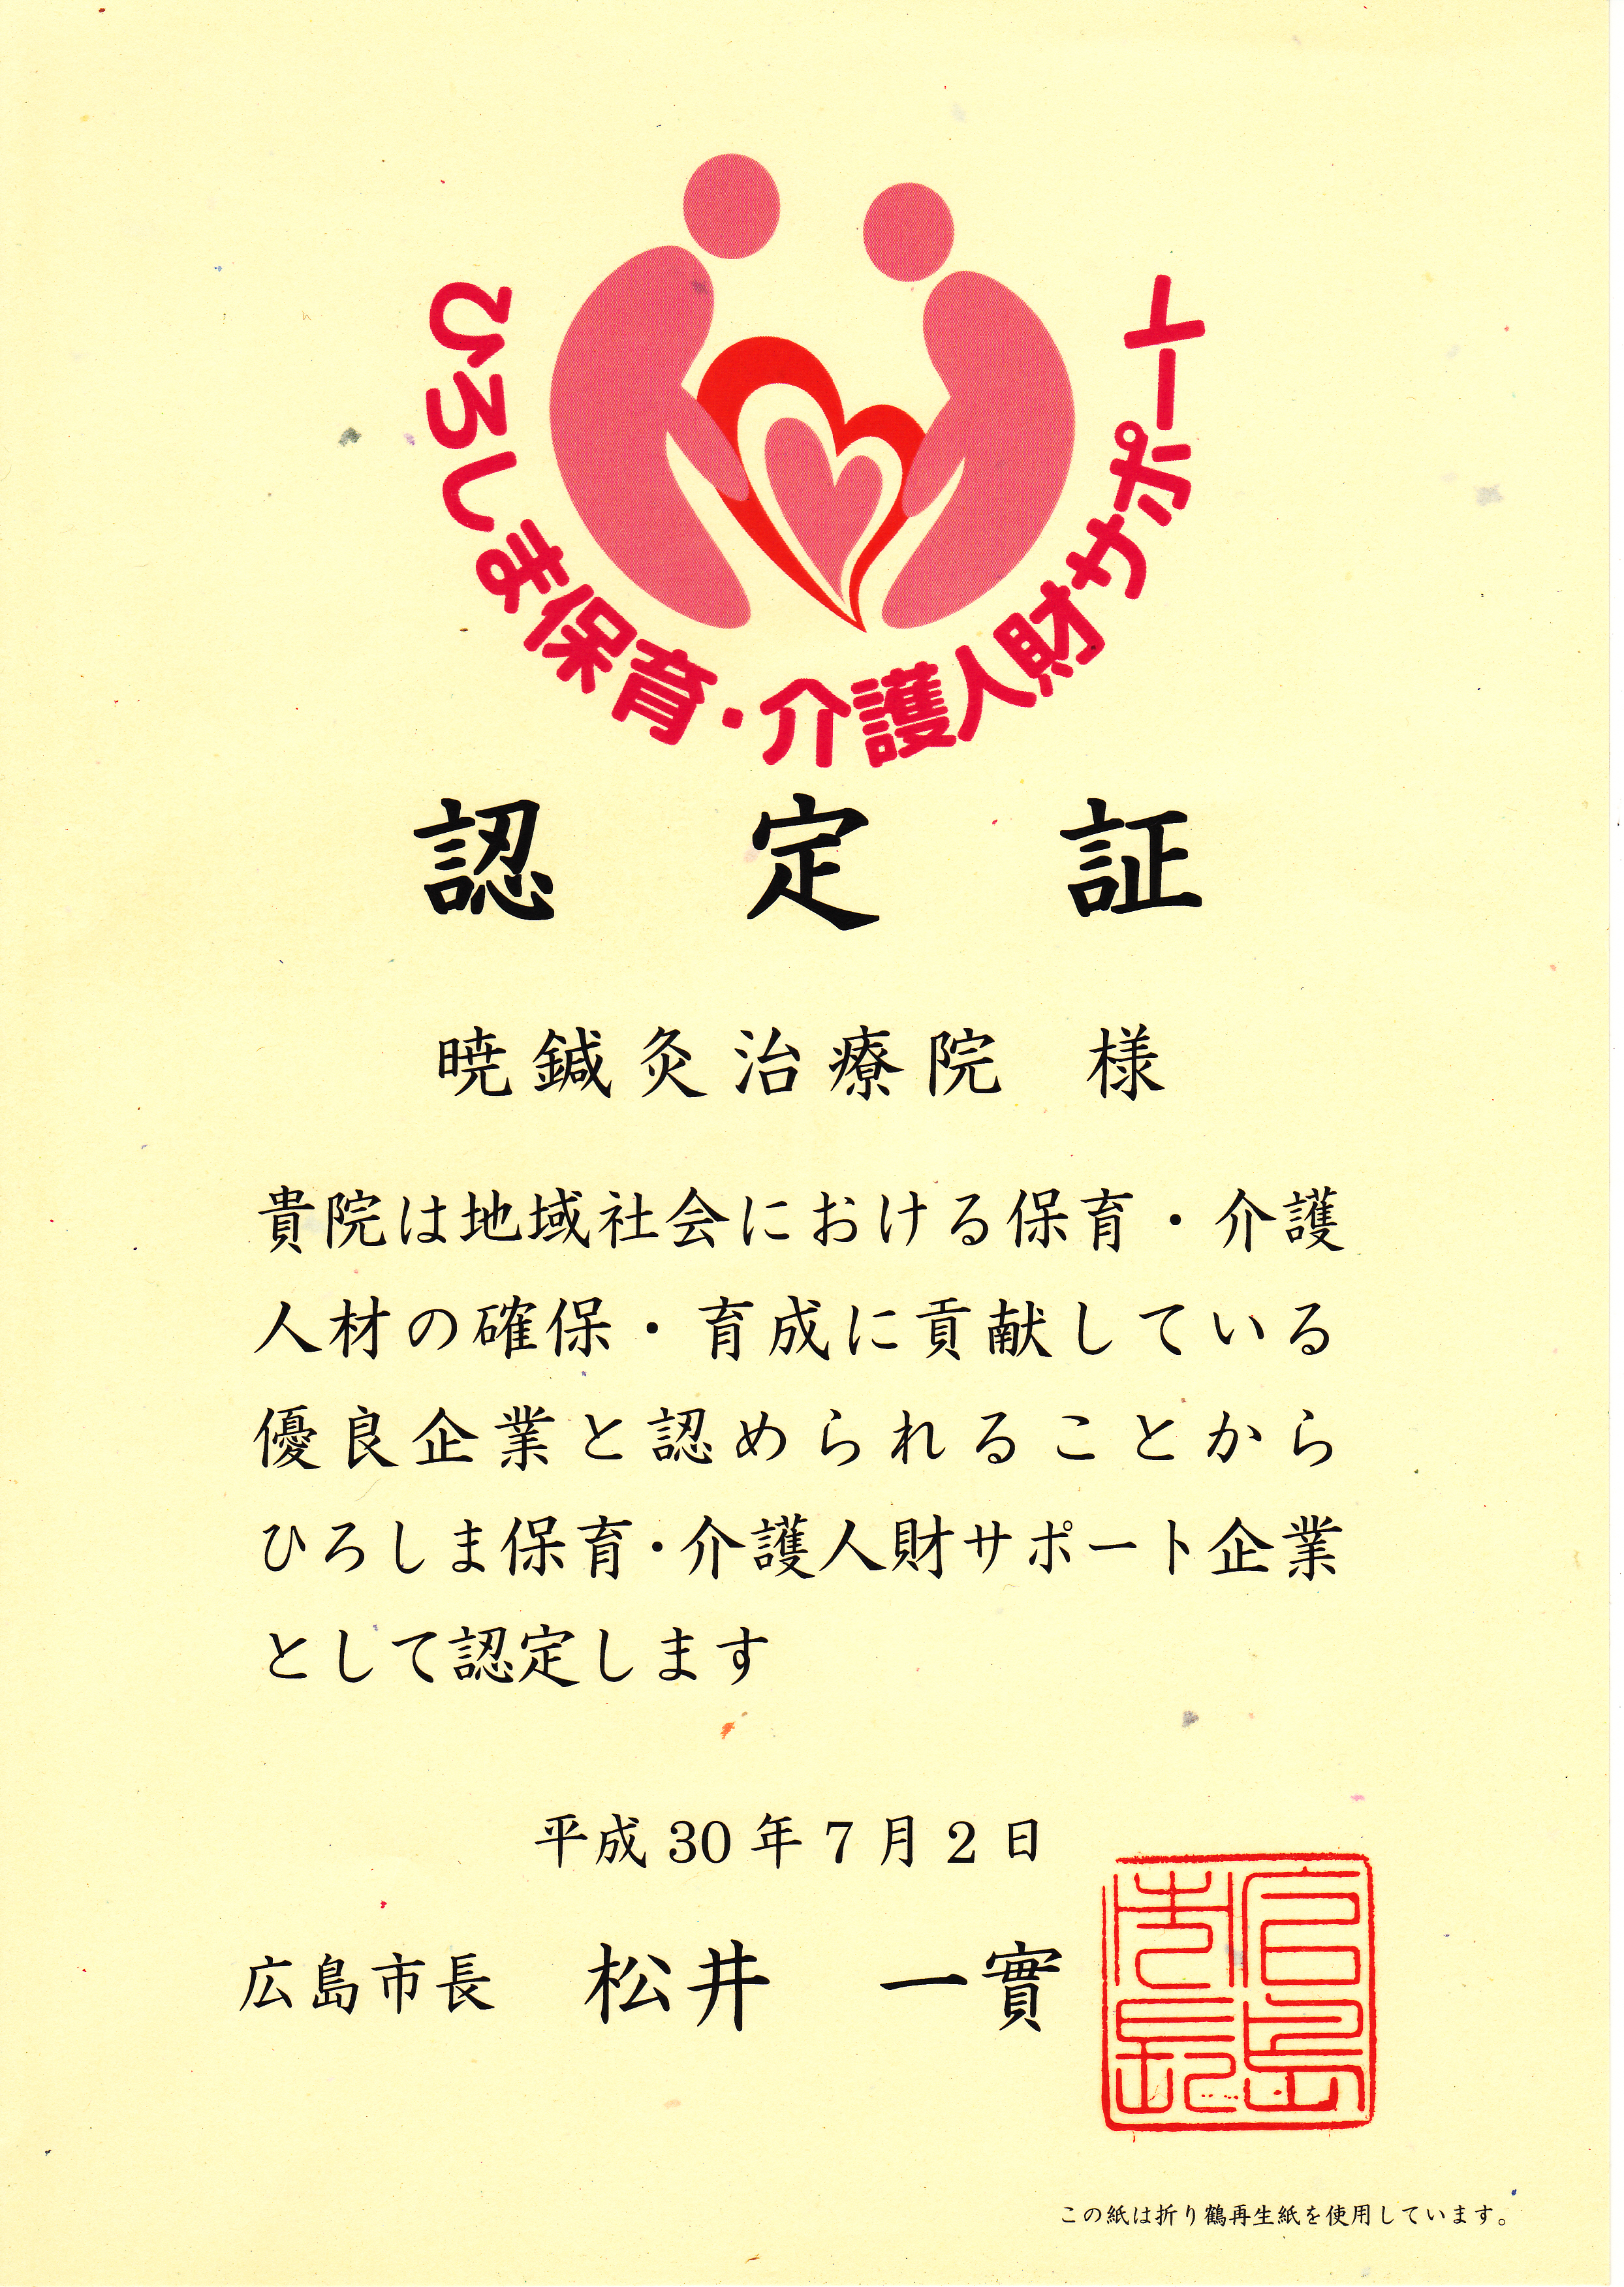 ひろしま保育・介護人財サポート
認定証
暁鍼灸治療院 様
貴院は地域社会における保育・介護
人材の確保・育成に貢献している
優良企業と認められることから
ひろしま保育・介護人財サポート企業
として認定します
平成30年7月2日
広島市長 松井 一實
この紙は折り鶴再生紙を使用しています。